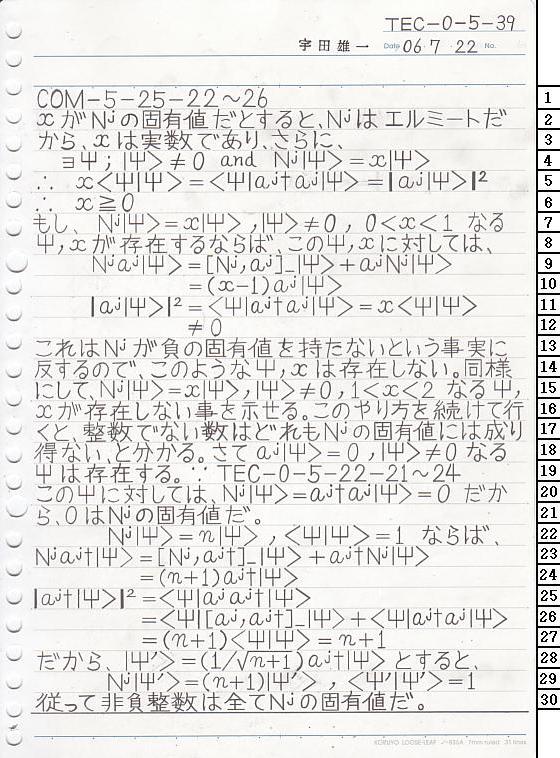 TEC-0-5-39
宇田雄一 Date 06 7 22 No.
COM-5-25-22～26
xがNʲの固有値だとすると、Nʲはエルミートだ
から、xは実数であり、さらに、
∃Ψ; |Ψ> ≠ 0 and Nʲ|Ψ> = x|Ψ>
∴ x<Ψ|Ψ> = <Ψ|aʲ†aʲ|Ψ> = |aʲ|Ψ>|²
∴ x ≧ 0
もし、Nʲ|Ψ> = x|Ψ>, |Ψ> ≠ 0, 0<x<1 なる
Ψ, xが存在するならば、このΨ, xに対しては、
Nʲaʲ|Ψ> = [Nʲ, aʲ]_|Ψ> + aʲNʲ|Ψ>
= (x-1)aʲ|Ψ>
|aʲ|Ψ>|² = <Ψ|aʲ†aʲ|Ψ> = x<Ψ|Ψ>
≠ 0
これはNʲが負の固有値を持たないという事実に
反するので、このようなΨ, xは存在しない。同様
にして、Nʲ|Ψ> = x|Ψ>, |Ψ> ≠ 0, 1<x<2 なるΨ,
xが存在しない事を示せる。このやり方を続けて行
くと、整数でない数はどれもNʲの固有値には成り
得ない、と分かる。さて aʲ|Ψ> = 0, |Ψ> ≠ 0 なる
Ψは存在する。∵ TEC-0-5-22-21～24
このΨに対しては、Nʲ|Ψ> = aʲ†aʲ|Ψ> = 0 だか
ら、0はNʲの固有値だ。
Nʲ|Ψ> = n|Ψ>, <Ψ|Ψ> = 1 ならば、
Nʲaʲ†|Ψ> = [Nʲ, aʲ†]_|Ψ> + aʲ†Nʲ|Ψ>
= (n+1)aʲ†|Ψ>
|aʲ†|Ψ>|² = <Ψ|aʲaʲ†|Ψ>
= <Ψ|[aʲ, aʲ†]_|Ψ> + <Ψ|aʲ†aʲ|Ψ>
= (n+1)<Ψ|Ψ> = n+1
だから、|Ψ'> = (1/√n+1)aʲ†|Ψ> とすると、
Nʲ|Ψ'> = (n+1)|Ψ'>, <Ψ'|Ψ'> = 1
従って非負整数は全てNʲの固有値だ。
KOKUYO LOOSE-LEAF ノ-836A 7mm ruled 31 lines
1
2
3
4
5
6
7
8
9
10
11
12
13
14
15
16
17
18
19
20
21
22
23
24
25
26
27
28
29
30